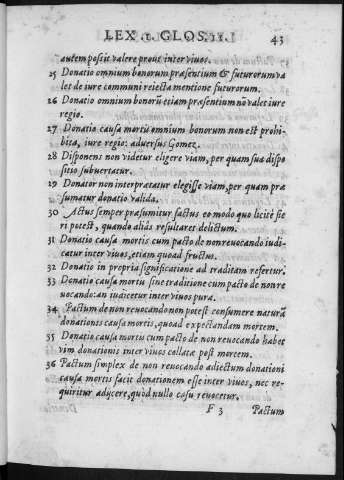 LEX .1. GLOS. II. 43
autem possit valere prout inter vivos.
25 Donatio omnium bonorum præsentium & futurorum va
let de iure communi reiecta mentione futurorum.
26 Donatio omnium bonorũ etiam præsentium nõ valet iure
regio.
27 Donatio causa mortis omnium bonorum non est prohi-
bita, iure regio: adversus Gomez.
28 Disponens non videtur eligere viam, per quam sua dispo
sitio subvertatur.
29 Donator non interpretatur elegisse viam, per quam præ
sumatur donatio valida.
30 Actus semper præsumitur factus eo modo quo licitè fie
ri potest, quando aliàs resultaret delictum.
31 Donatio causa mortis cum pacto de non revocando iudi-
catur inter vivos, etiam quoad fructus.
32 Donatio in propria significatione ad traditam refertur.
33 Donatio causa mortis sine traditione cum pacto de non re
vocando: an iudicetur inter vivos pura.
34 Pactum de non revocando non potest consumere naturã
donationis causa mortis, quoad expectandam mortem.
35 Donatio causa mortis cum pacto de non revocando habet
vim donationis inter vivos collatæ post mortem.
36 Pactum simplex de non revocando adiectum donationi
causa mortis facit donationem esse inter vivos, nec re-
quiritur adijcere, quòd nullo casu revocetur.
F 3 Pactum